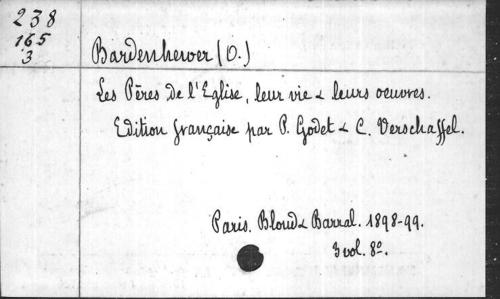 238
165
3
Bardenhewer (O.)
Les Pères de l'Eglise, leur vie & leurs oeuvres.
Edition française par P. Godet & C. Verschaffel.
Paris. Bloud & Barral. 1898-99.
3 vol. 8º.